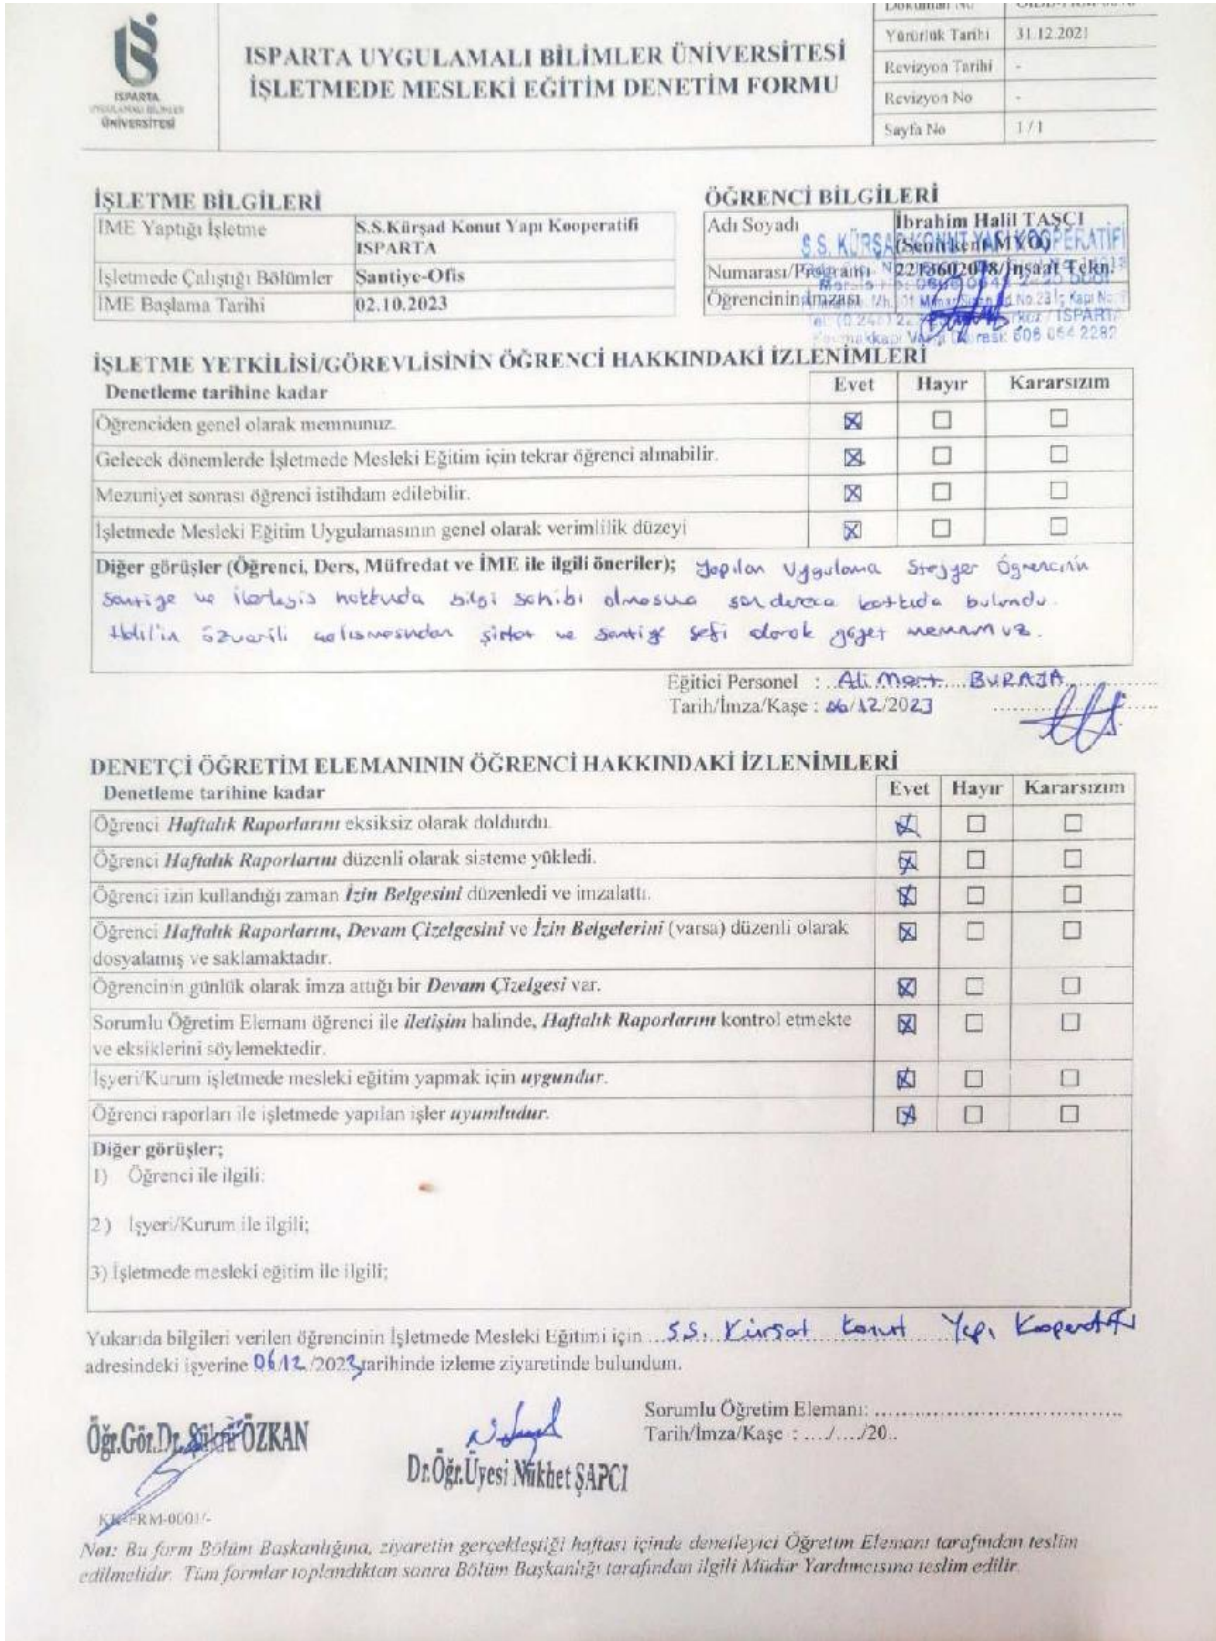 Yürürlük Tarihi 31.12.2021
ISPARTA UYGULAMALI BİLİMLER ÜNİVERSİTESİ
İŞLETMEDE MESLEKİ EĞİTİM DENETİM FORMU
Revizyon Tarihi -
Revizyon No -
Sayfa No 1 / 1
ISPARTA
UYGULAMALI BİLİMLER
ÜNİVERSİTESİ
İŞLETME BİLGİLERİ
İME Yaptığı İşletme S.S.Kürşad Konut Yapı Kooperatifi
ISPARTA
İşletmede Çalıştığı Bölümler Santiye-Ofis
İME Başlama Tarihi 02.10.2023
ÖĞRENCİ BİLGİLERİ
Adı Soyadı İbrahim Halil TAŞÇI
(Senirkent MYO)
Numarası/Programı
Öğrencinin İmzası
S.S. KÜRŞAD KONUT YAPI KOOPERATİFİ
İŞLETME YETKİLİSİ/GÖREVLİSİNİN ÖĞRENCİ HAKKINDAKİ İZLENİMLERİ
Denetleme tarihine kadar Evet Hayır Kararsızım
Öğrenciden genel olarak memnunuz.
Gelecek dönemlerde İşletmede Mesleki Eğitim için tekrar öğrenci alınabilir.
Mezuniyet sonrası öğrenci istihdam edilebilir.
İşletmede Mesleki Eğitim Uygulamasının genel olarak verimlilik düzeyi
Diğer görüşler (Öğrenci, Ders, Müfredat ve İME ile ilgili öneriler); Yapılan Uygulama Stajyer Öğrencinin
şantiye ve ilerleyiş hakkında bilgi sahibi olmasına son derece katkıda bulundu.
Halil'in özverili çalışmasından şirket ve şantiye şefi olarak gayet memnunuz.
Eğitici Personel : Ali Mert
Tarih/İmza/Kaşe : 06/12/2023
DENETÇİ ÖĞRETİM ELEMANININ ÖĞRENCİ HAKKINDAKİ İZLENİMLERİ
Denetleme tarihine kadar Evet Hayır Kararsızım
Öğrenci Haftalık Raporlarını eksiksiz olarak doldurdu.
Öğrenci Haftalık Raporlarını düzenli olarak sisteme yükledi.
Öğrenci izin kullandığı zaman İzin Belgesini düzenledi ve imzalattı.
Öğrenci Haftalık Raporlarını, Devam Çizelgesini ve İzin Belgelerini (varsa) düzenli olarak
dosyalamış ve saklamaktadır.
Öğrencinin günlük olarak imza attığı bir Devam Çizelgesi var.
Sorumlu Öğretim Elemanı öğrenci ile iletişim halinde, Haftalık Raporlarını kontrol etmekte
ve eksiklerini söylemektedir.
İşyeri/Kurum işletmede mesleki eğitim yapmak için uygundur.
Öğrenci raporları ile işletmede yapılan işler uyumludur.
Diğer görüşler;
1) Öğrenci ile ilgili:
2) İşyeri/Kurum ile ilgili;
3) İşletmede mesleki eğitim ile ilgili;
Yukarıda bilgileri verilen öğrencinin İşletmede Mesleki Eğitimi için S.S. Kürşat Konut Yapı Kooperatifi
adresindeki işyerine 06/12/2023 tarihinde izleme ziyaretinde bulundum.
Sorumlu Öğretim Elemanı:
Tarih/İmza/Kaşe : .../..../20..
Öğr.Gör.Dr. Şükrü ÖZKAN
Dr.Öğr.Üyesi Nükhet ŞAPCI
Not: Bu form Bölüm Başkanlığına, ziyaretin gerçekleştiği haftası içinde denetleyici Öğretim Elemanı tarafından teslim
edilmelidir. Tüm formlar toplandıktan sonra Bölüm Başkanlığı tarafından ilgili Müdür Yardımcısına teslim edilir.